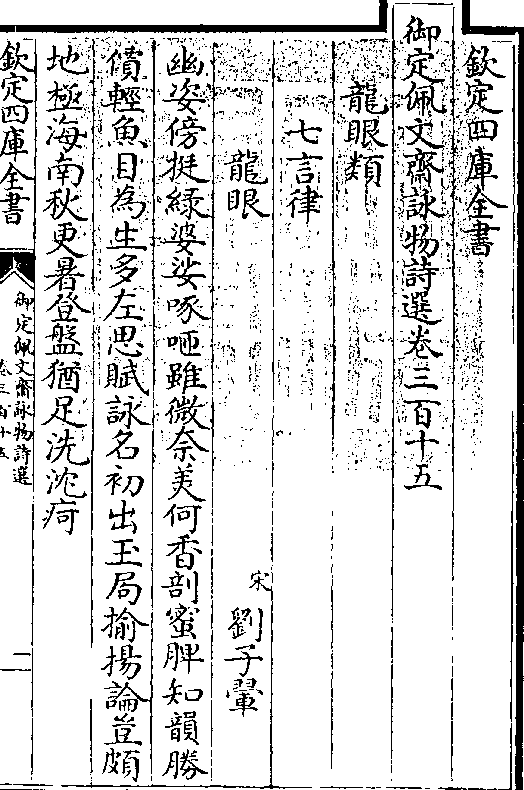 欽定四庫全書
御定佩文齋詠物詩選卷三百十五
龍眼類
七言律
龍眼
宋
劉子翬
幽姿傍挺綠婆娑啄咂雖微奈美何香剖蜜脾知韻勝
價輕魚目為生多左思賦詠名初出玉局揄揚論豈頗
地極海南秋更暑登盤猶足洗沈疴
欽定四庫全書
御定佩文齋詠物詩選
卷三百十五
一